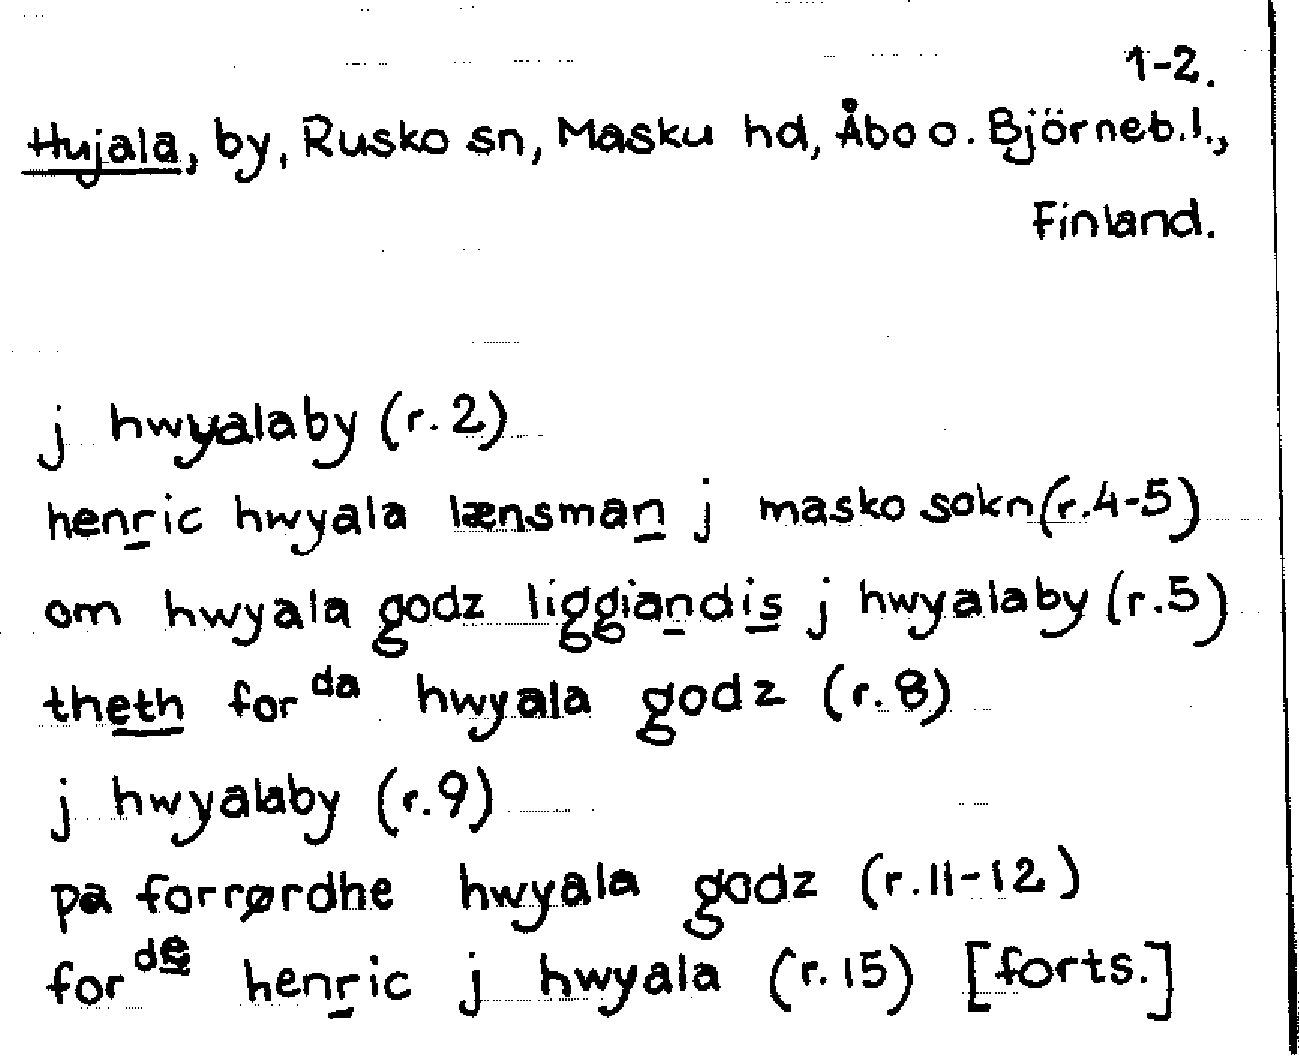 1-2.
Hujala, by, Rusko sn, Masku hd, Åbo o. Björneb.l.,
Finland.
j hwyalaby (r. 2)
henric hwyala lænsman j masko sokn (r.4-5)
om hwyala godz liggiandis j hwyalaby (r.5)
theth for da hwyala godz (r. 8)
j hwyalaby (r.9)
pa forrørdhe hwyala godz (r.11-12)
for de henric j hwyala (r. 15) [forts.]